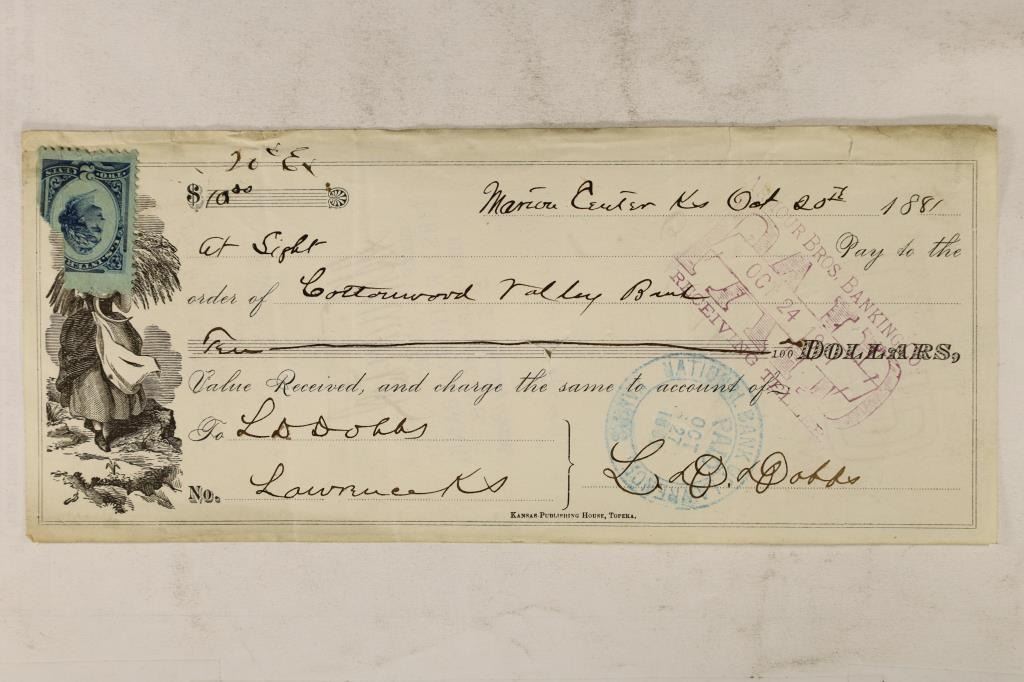 $10.00
Marion Center Ks Oct 20th 1881
At Sight Pay to the
order of Cottonwood Valley Bank
Ten 100 DOLLARS,
Value Received, and charge the same to account of
To L D Dobbs
No. Lawrence Ks
L. D. Dobbs
KANSAS PUBLISHING HOUSE, TOPEKA.
BROS. BANKING CO.
PAID
OC 24
RECEIVING TELLER
NATIONAL BANK
PAID
OCT
27